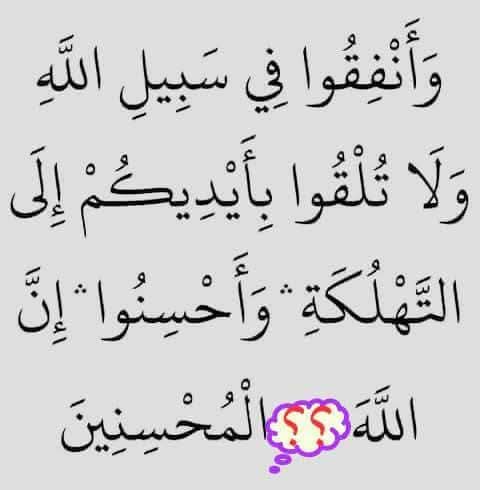 وَأَنْفِقُوا فِي سَبِيلِ اللَّهِ
وَلَا تُلْقُوا بِأَيْدِيكُمْ إِلَى
التَّهْلُكَةِ ۛ وَأَحْسِنُوا ۛ إِنَّ
اللَّهَ ؟؟ الْمُحْسِنِينَ